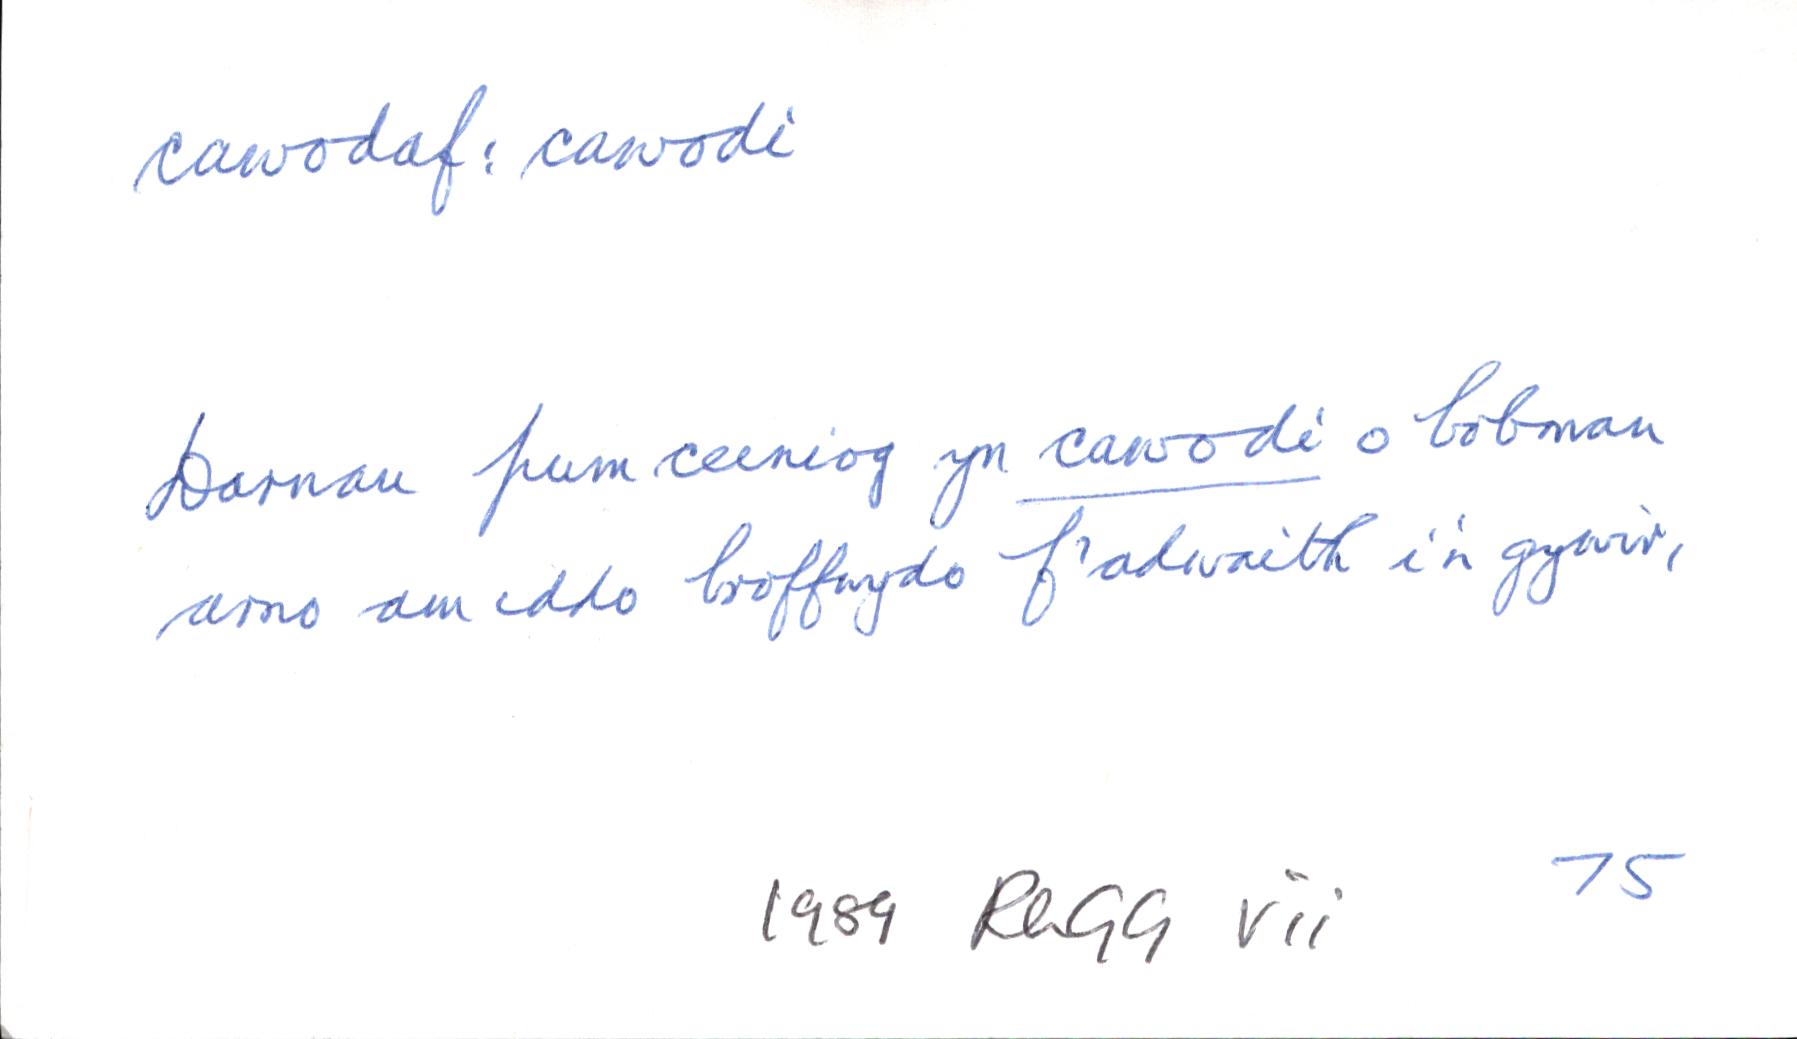 cawodaf: cawodi
Darnau pum ceeniog yn cawodi o bobman
arno am iddo broffwydo f'adwaith i'n gywir,
75
1989 RhGG vii